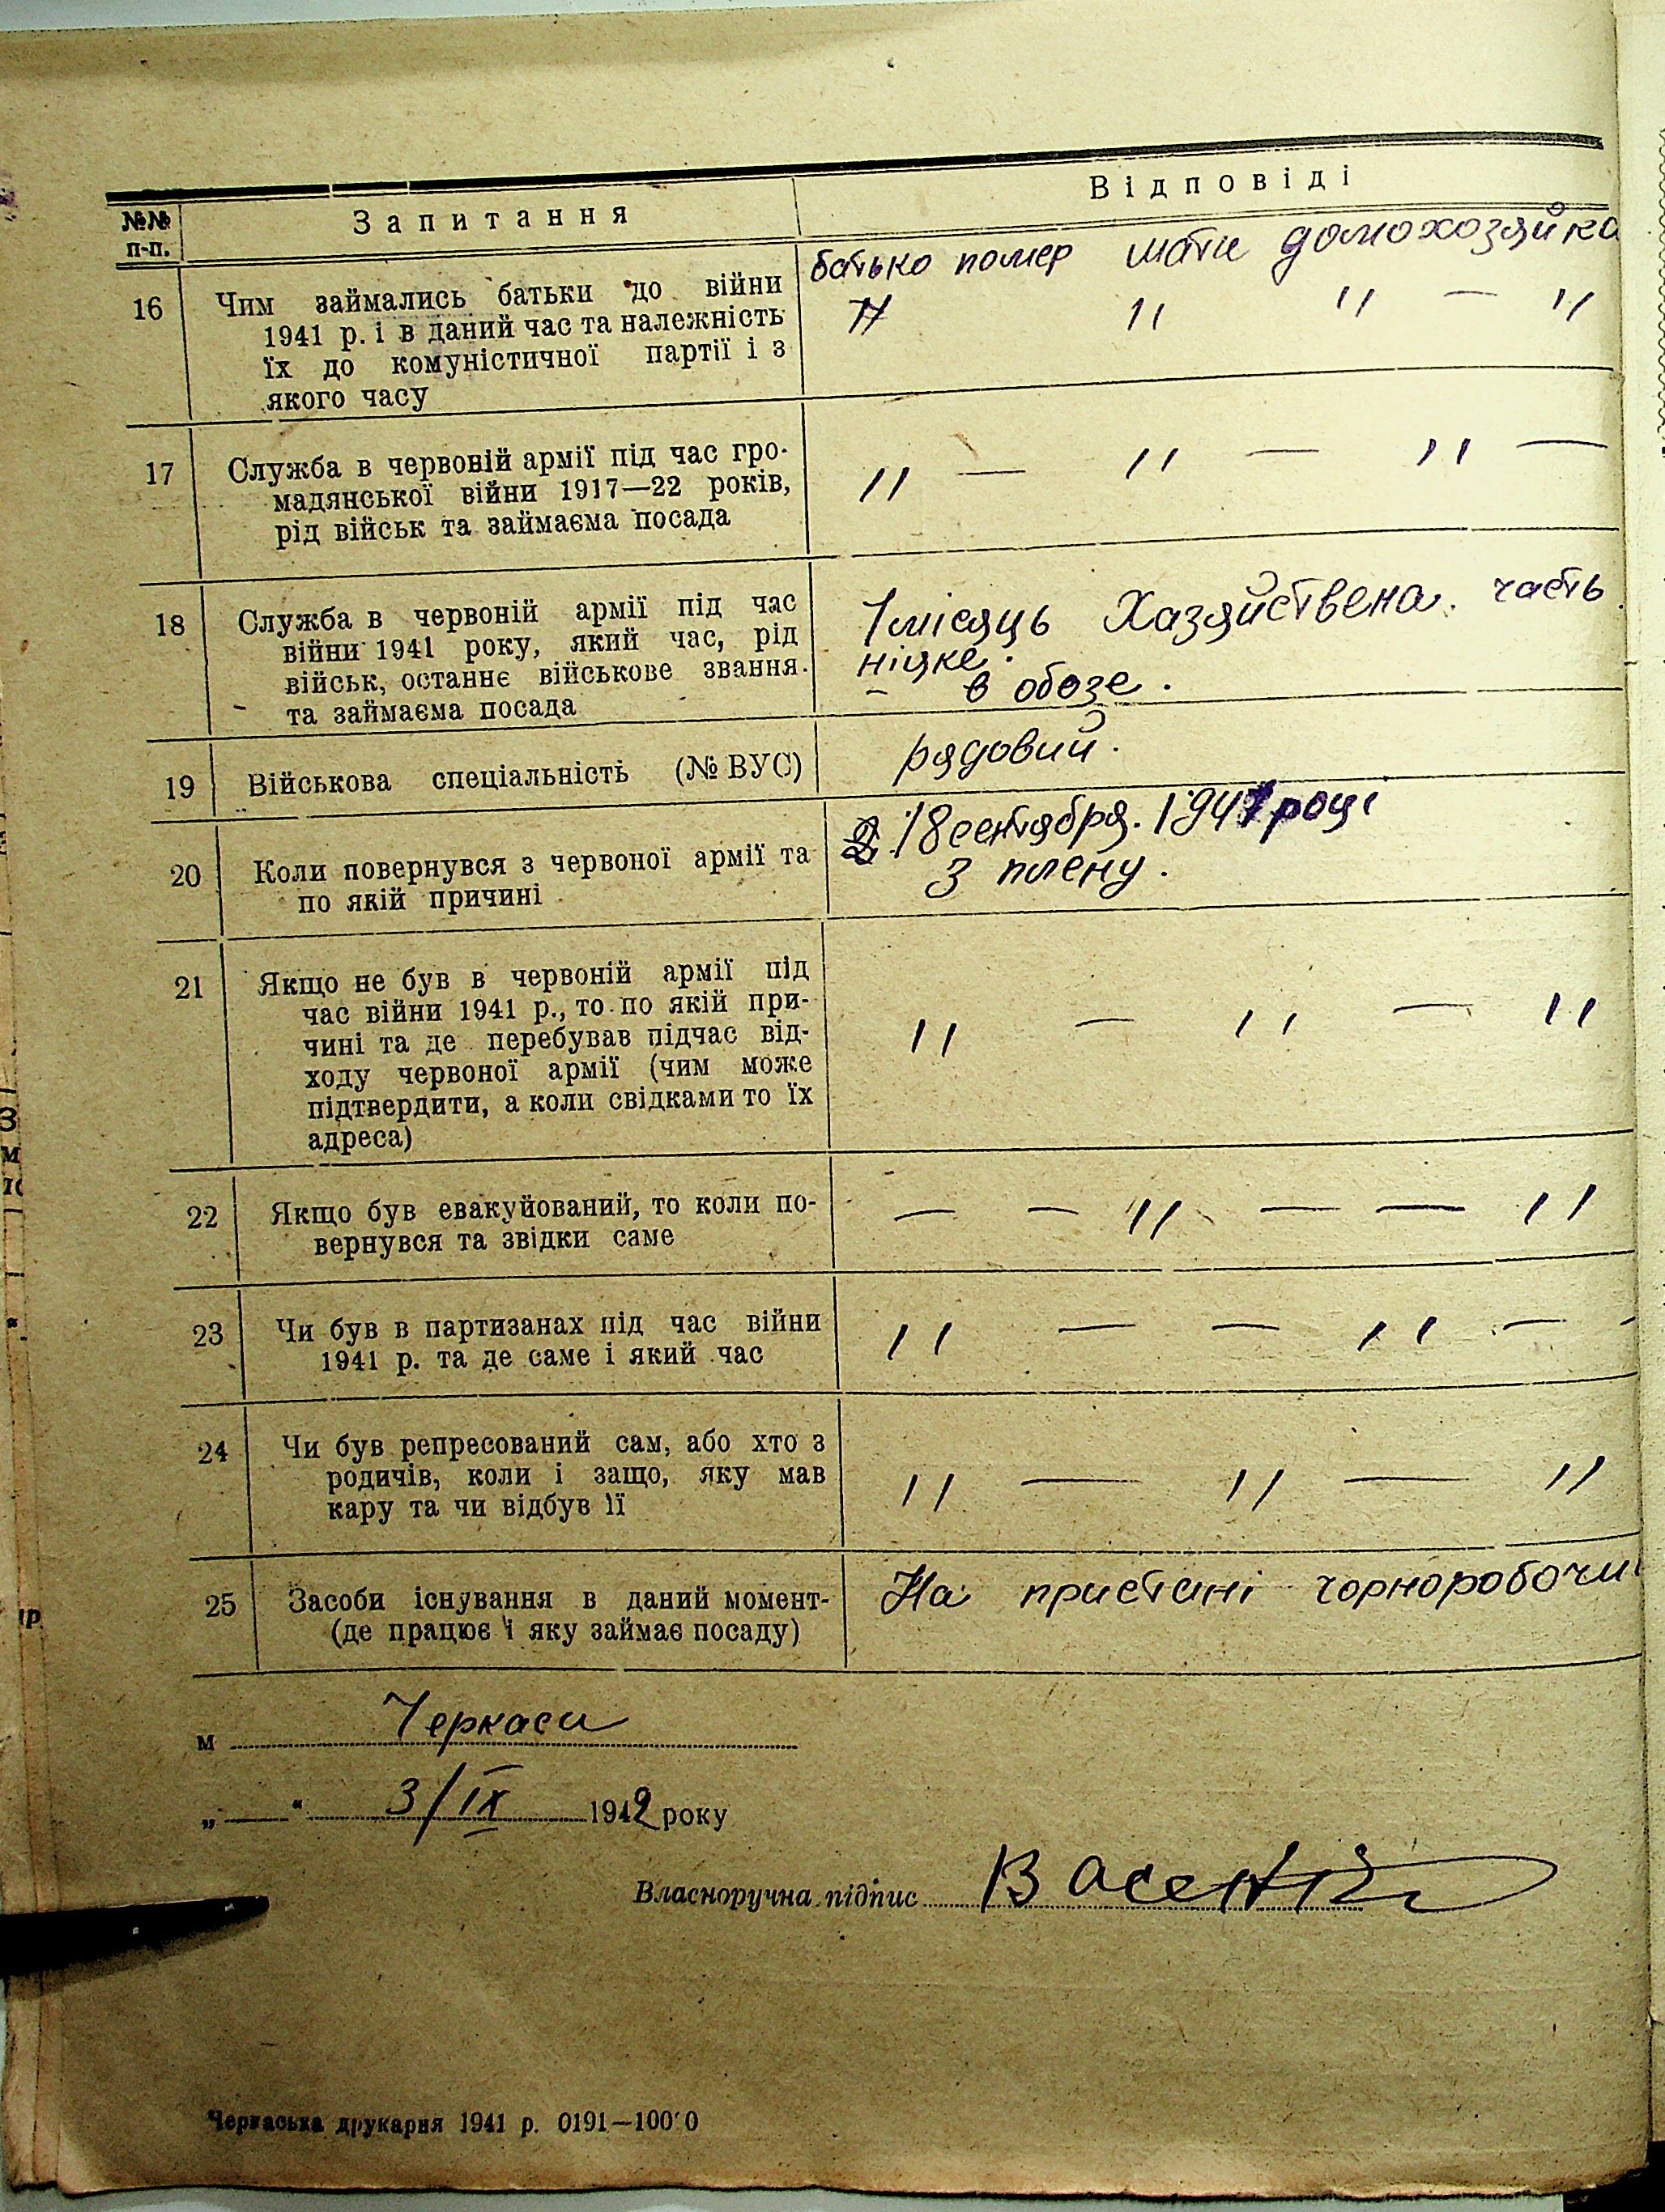 №№ п-п. Запитання Відповіді
16 Чим займались батьки до війни
1941 р. і в даний час та належність
їх до комуністичної партії і з
якого часу
батько помер мати домохозяйка
" " " — "
17 Служба в червоній армії під час гро-
мадянської війни 1917—22 років,
рід військ та займаєма посада
" — " — " —
18 Служба в червоній армії під час
війни 1941 року, який час, рід
військ, останнє військове звання
та займаєма посада
1 місяць Хазяйствена. часть
ніяке.
— в обозе.
19 Військова спеціальність (№ ВУС)
рядовий.
20 Коли повернувся з червоної армії та
по якій причині
18 сентября. 1941 році
З плену.
21 Якщо не був в червоній армії під
час війни 1941 р., то по якій при-
чині та де перебував підчас від-
ходу червоної армії (чим може
підтвердити, а коли свідками то їх
адреса)
" — " — "
22 Якщо був евакуйований, то коли по-
вернувся та звідки саме
— — " — — "
23 Чи був в партизанах під час війни
1941 р. та де саме і який час
" — — " — -
24 Чи був репресований сам, або хто з
родичів, коли і защо, яку мав
кару та чи відбув її
" — " — "
25 Засоби існування в даний момент-
(де працює і яку займає посаду)
На пристані чорноробочий
м Черкаси
„ — “ 3/IX 1942 року
Власноручна підпис Васенк
Черкаська друкарня 1941 р. 0191—100'0